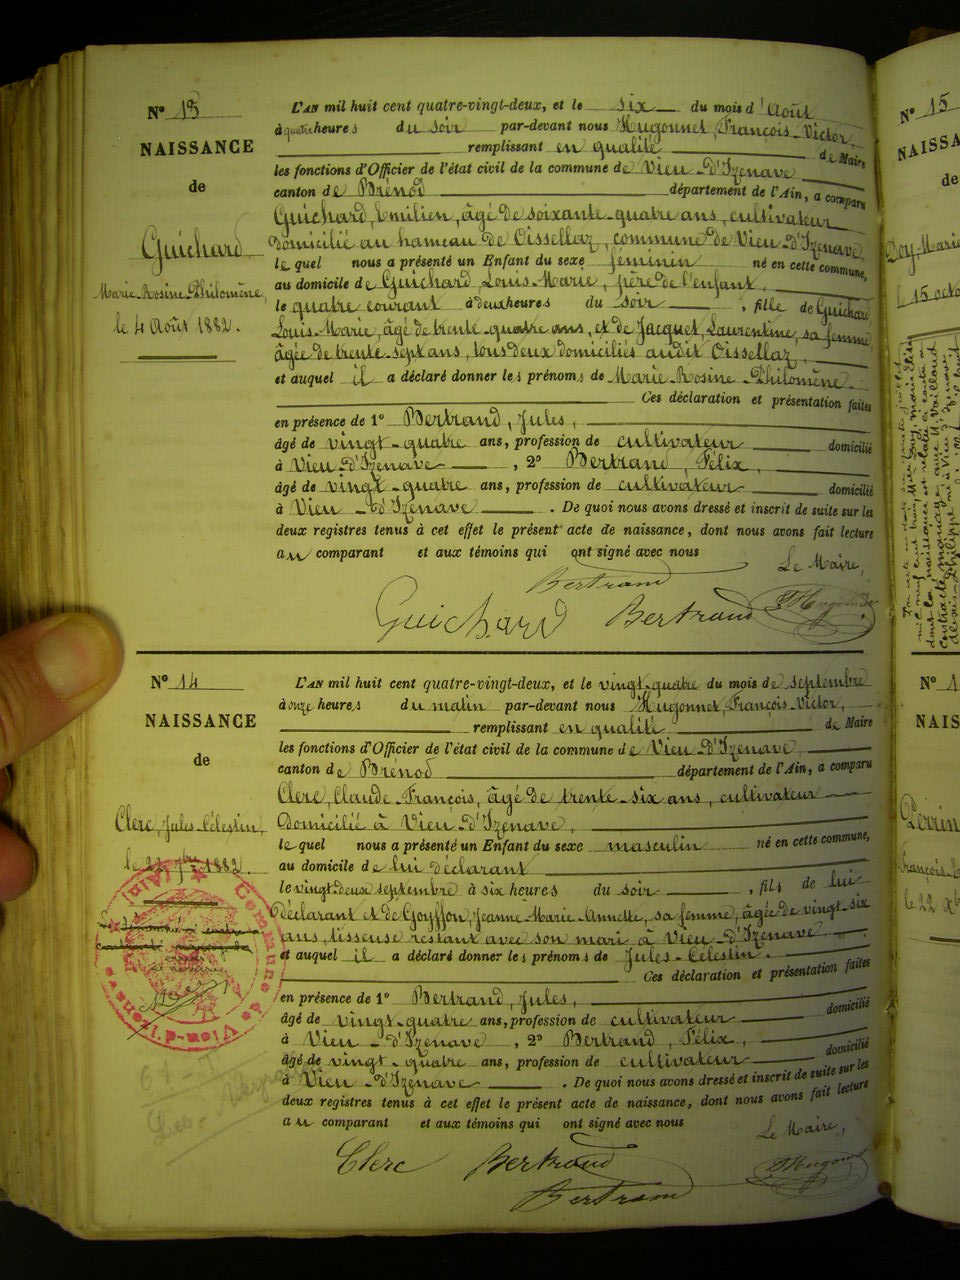 N° 13
NAISSANCE
de
Guichard,
Marie-Rosine-Philomène,
le 4 Août 1882.
L'AN mil huit cent quatre-vingt-deux, et le six du mois d'Août
à quatre heures du soir par-devant nous Hugonnet, François-Victor,
remplissant en qualité de Maire
les fonctions d'Officier de l'état civil de la commune de Vieu-d'Izenave
canton de Brénod département de l'Ain, a comparu
Guichard, Emilien, âgé de soixante-quatre ans, cultivateur
domicilié au hameau de Oissellaz, commune de Vieu-d'Izenave
le quel nous a présenté un Enfant du sexe féminin né en cette commune,
au domicile de Guichard, Louis-Marie, père de l'enfant,
le quatre courant à deux heures du soir, fille de Guichard
Louis-Marie, âgé de trente-quatre ans, et de Jacquet, Laurentine, sa femme,
âgée de trente-sept ans, tous deux domiciliés audit Oissellaz,
et auquel il a déclaré donner les prénoms de Marie-Rosine-Philomène.
Ces déclaration et présentation faites
en présence de 1° Bertrand, Jules,
âgé de vingt-quatre ans, profession de cultivateur domicilié
à Vieu-d'Izenave, 2° Bertrand, Félix,
âgé de vingt-quatre ans, profession de cultivateur domicilié
à Vieu-d'Izenave. De quoi nous avons dressé et inscrit de suite sur les
deux registres tenus à cet effet le présent acte de naissance, dont nous avons fait lecture
au comparant et aux témoins qui ont signé avec nous
Le Maire,
Bertrand
Guichard Bertrand FHugonnet
N° 14
NAISSANCE
de
Clerc, Jules-Célestin,
le 22 7bre 1882.
L'AN mil huit cent quatre-vingt-deux, et le vingt-quatre du mois de septembre
à onze heures du matin par-devant nous Hugonnet, François-Victor,
remplissant en qualité de Maire
les fonctions d'Officier de l'état civil de la commune de Vieu-d'Izenave,
canton de Brénod département de l'Ain, a comparu
Clerc, Claude-François, âgé de trente-six ans, cultivateur
domicilié à Vieu-d'Izenave,
le quel nous a présenté un Enfant du sexe masculin né en cette commune,
au domicile de lui déclarant
le vingt-deux septembre à six heures du soir, fils de lui
déclarant et de Goyffon, Jeanne-Marie-Annette, sa femme, âgée de vingt-six
ans, tisseuse restant avec son mari à Vieu-d'Izenave.
et auquel il a déclaré donner les prénoms de Jules-Célestin.
Ces déclaration et présentation faites
en présence de 1° Bertrand, Jules,
âgé de vingt-quatre ans, profession de cultivateur domicilié
à Vieu-d'Izenave, 2° Bertrand, Félix,
âgé de vingt-quatre ans, profession de cultivateur domicilié
à Vieu-d'Izenave. De quoi nous avons dressé et inscrit de suite sur les
deux registres tenus à cet effet le présent acte de naissance, dont nous avons fait lecture
au comparant et aux témoins qui ont signé avec nous
Le Maire,
Clerc Bertrand FHugonnet
Bertrand
Commune de Vieu-d'Izenave
N° 15
NAISSA
de
Marie
le 15 octo
N° 1
NAIS
Perrin
François
le 22